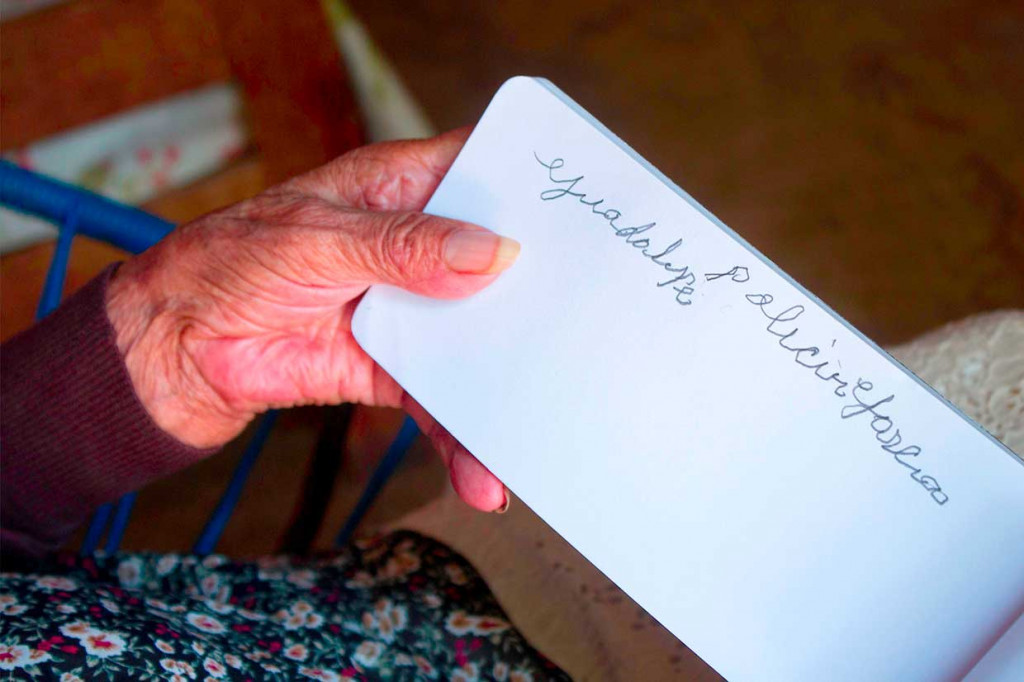 Guadalupe Palicin Garcia